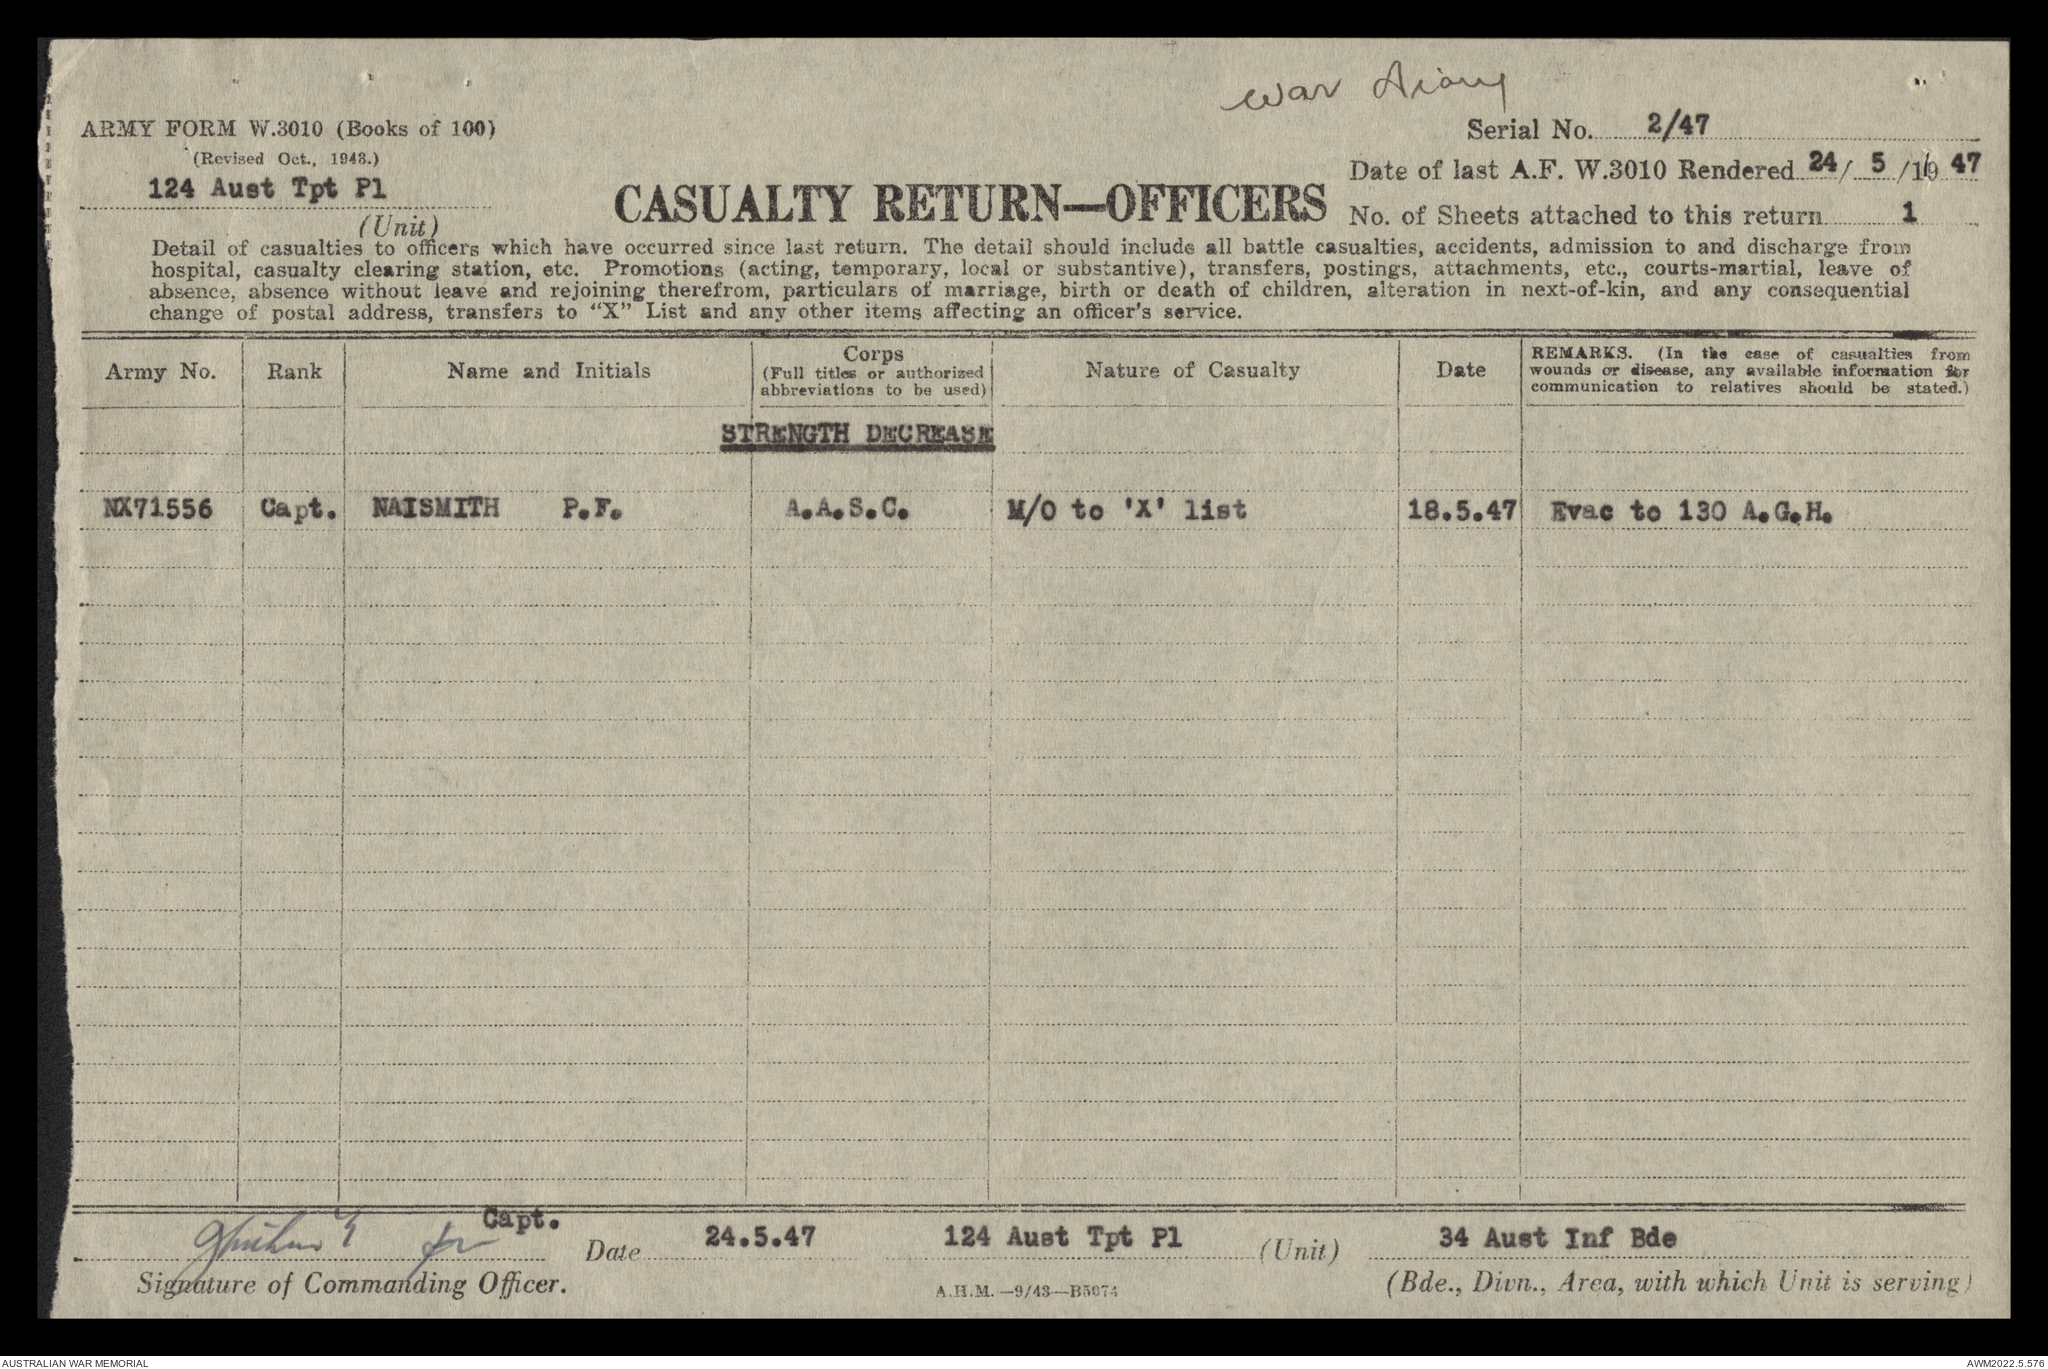 War Diary
ARMY FORM W.3010 (Books of 100)
(Revised Oct., 1943.)
124 Aust Tpt Pl
(Unit)
CASUALTY RETURN—OFFICERS
Serial No. 2/47
Date of last A.F. W.3010 Rendered 24/ 5 /19 47
No. of Sheets attached to this return 1
Detail of casualties to officers which have occurred since last return. The detail should include all battle casualties, accidents, admission to and discharge from
hospital, casualty clearing station, etc. Promotions (acting, temporary, local or substantive), transfers, postings, attachments, etc., courts-martial, leave of
absence, absence without leave and rejoining therefrom, particulars of marriage, birth or death of children, alteration in next-of-kin, and any consequential
change of postal address, transfers to "X" List and any other items affecting an officer's service.
Army No. Rank Name and Initials Corps (Full titles or authorized abbreviations to be used) Nature of Casualty Date REMARKS. (In the case of casualties from wounds or disease, any available information for communication to relatives should be stated.)
STRENGTH DECREASE
NX71556 Capt. NAISMITH P.F. A.A.S.C. M/O to 'X' list 18.5.47 Evac to 130 A.G.H.
for Capt.
Signature of Commanding Officer.
Date 24.5.47
124 Aust Tpt Pl (Unit)
34 Aust Inf Bde
(Bde., Divn., Area, with which Unit is serving)
A.H.M.—9/43—B5074
AUSTRALIAN WAR MEMORIAL
AWM2022.5.576